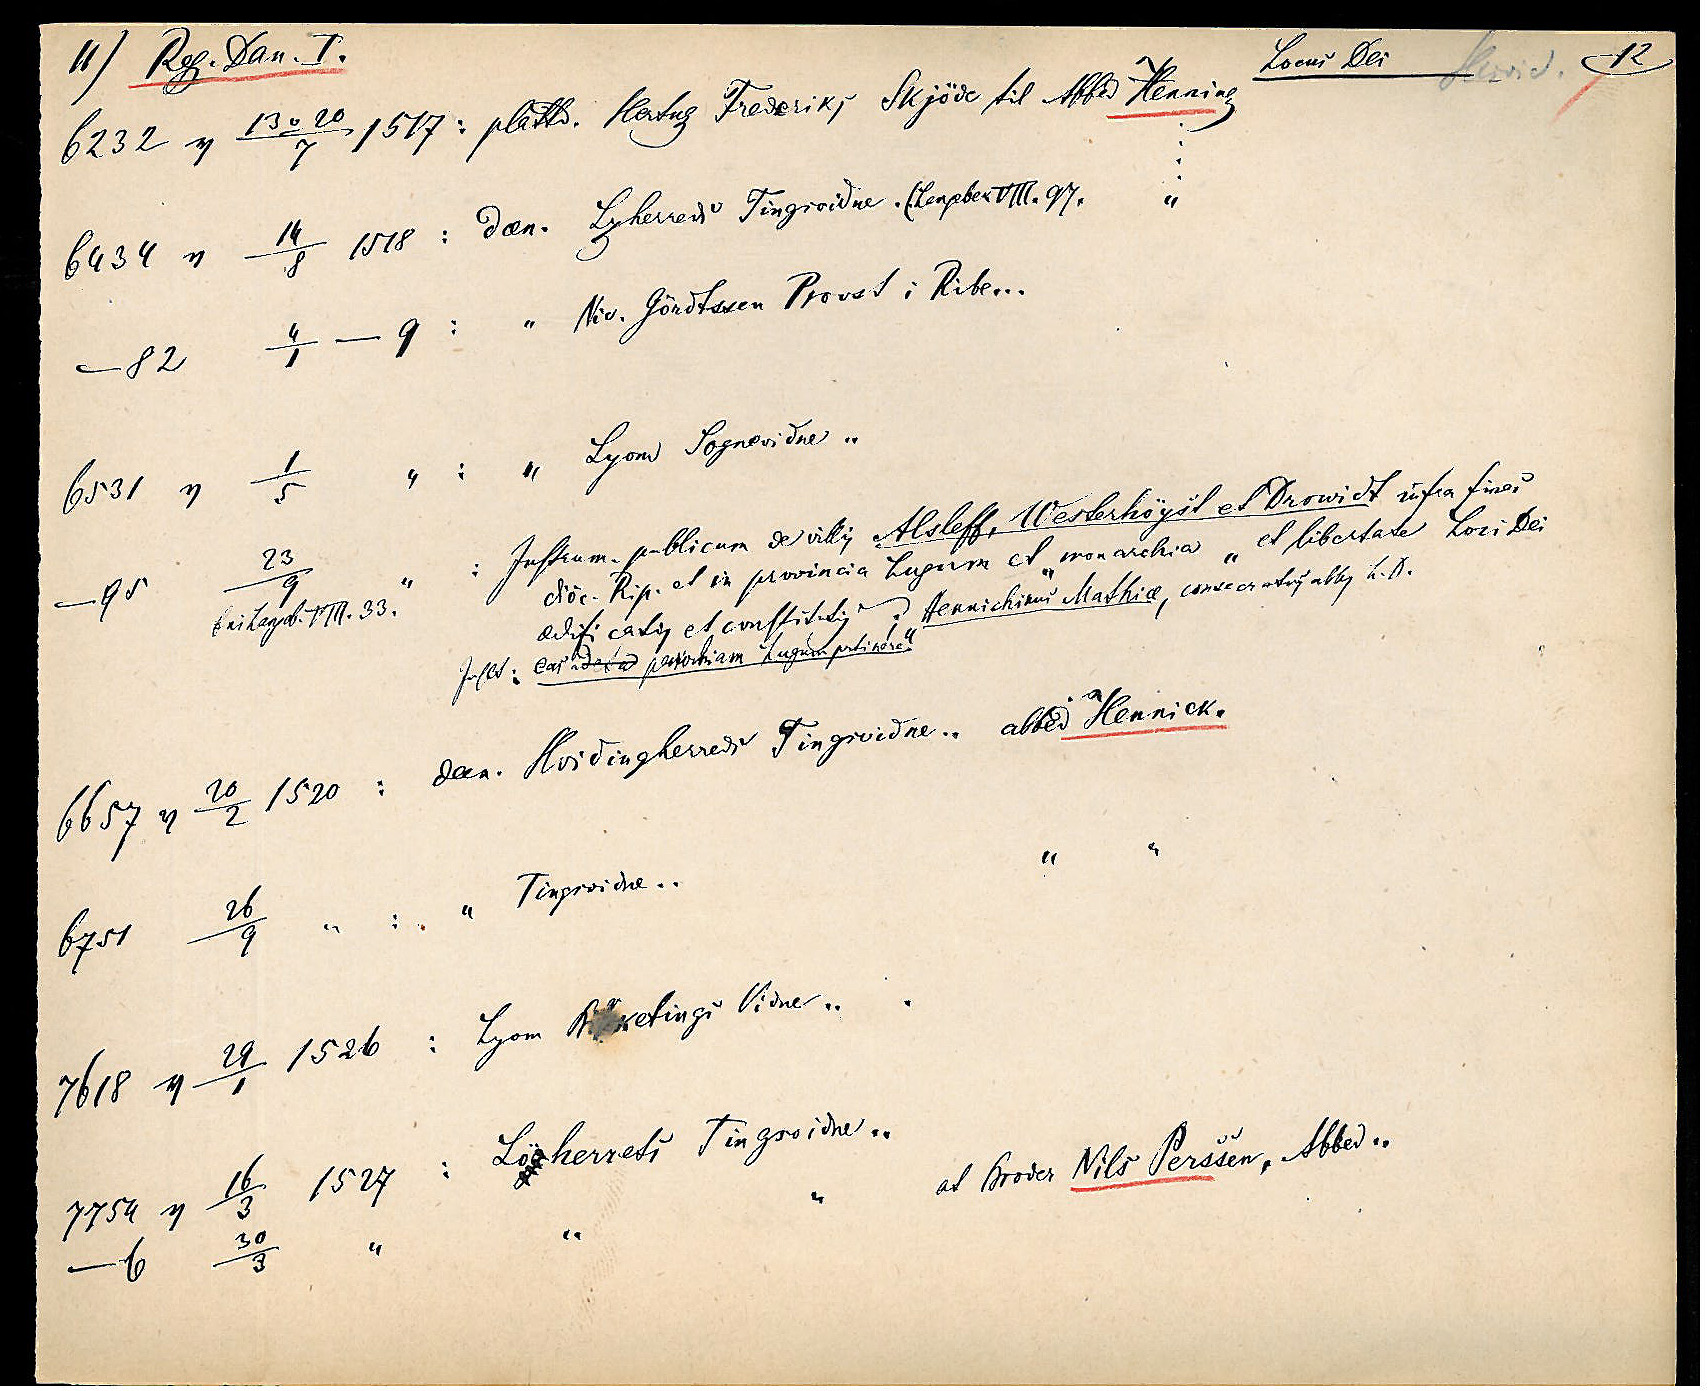 11) Reg. Dan. I. Locus Dei 12
6232 13 o 20/7 1517 : plattd. Hertug Frederiks Skjöde til Abbed Henning
6434 14/8 1518 : dæn. Lyherreds Tingsvidne . (Langebek VIII. 97. "
— 82 4/1 — 9 : " Nic. Gördtssen Provst i Ribe...
6531 1/5 " : " Lyom Sognevidne ..
— 95 23/9 " : Instrum. publicum de villis Alsleff, Westerhöyst et Drowidt infra fines
diöc. Rip. et in provincia Lugum et "monarchia" et libertate Loci Dei
VIII. 33. ædificatis et constitutis Hennichinus Mathiæ, consecratus abbs L. D.
parochiam Lugum
6657 20/2 1520 : dæn. Hvidingherreds Tingsvidne .. abbed Hennick.
6751 26/9 " : " Tingsvidne .. " "
7618 29/1 1526 : Lyom Vidne ..
7754 16/3 1527 : Löherrets Tingsvidne ..
— 6 30/3 " " " at Broder Nils Perssen, Abbed ..